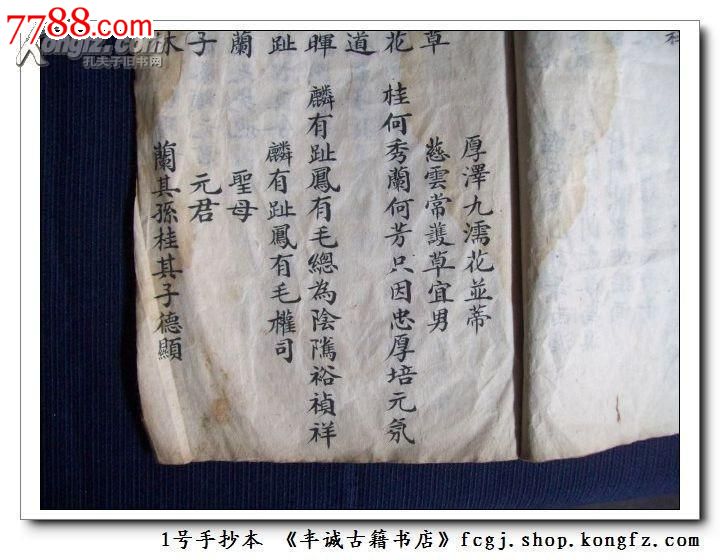 7788.com
Kongfz.com
孔夫子旧书网
厚澤九濡花並蒂
草
慈雲常護草宜男
花
桂何秀蘭何芳只因忠厚培元氛
道
暉
麟有趾鳳有毛總為陰隲裕禎祥
趾
麟有趾鳳有毛權司
蘭
聖母
子
元君
蘭其孫桂其子德顯
1号手抄本 《丰诚古籍书店》fcgj.shop.kongfz.com